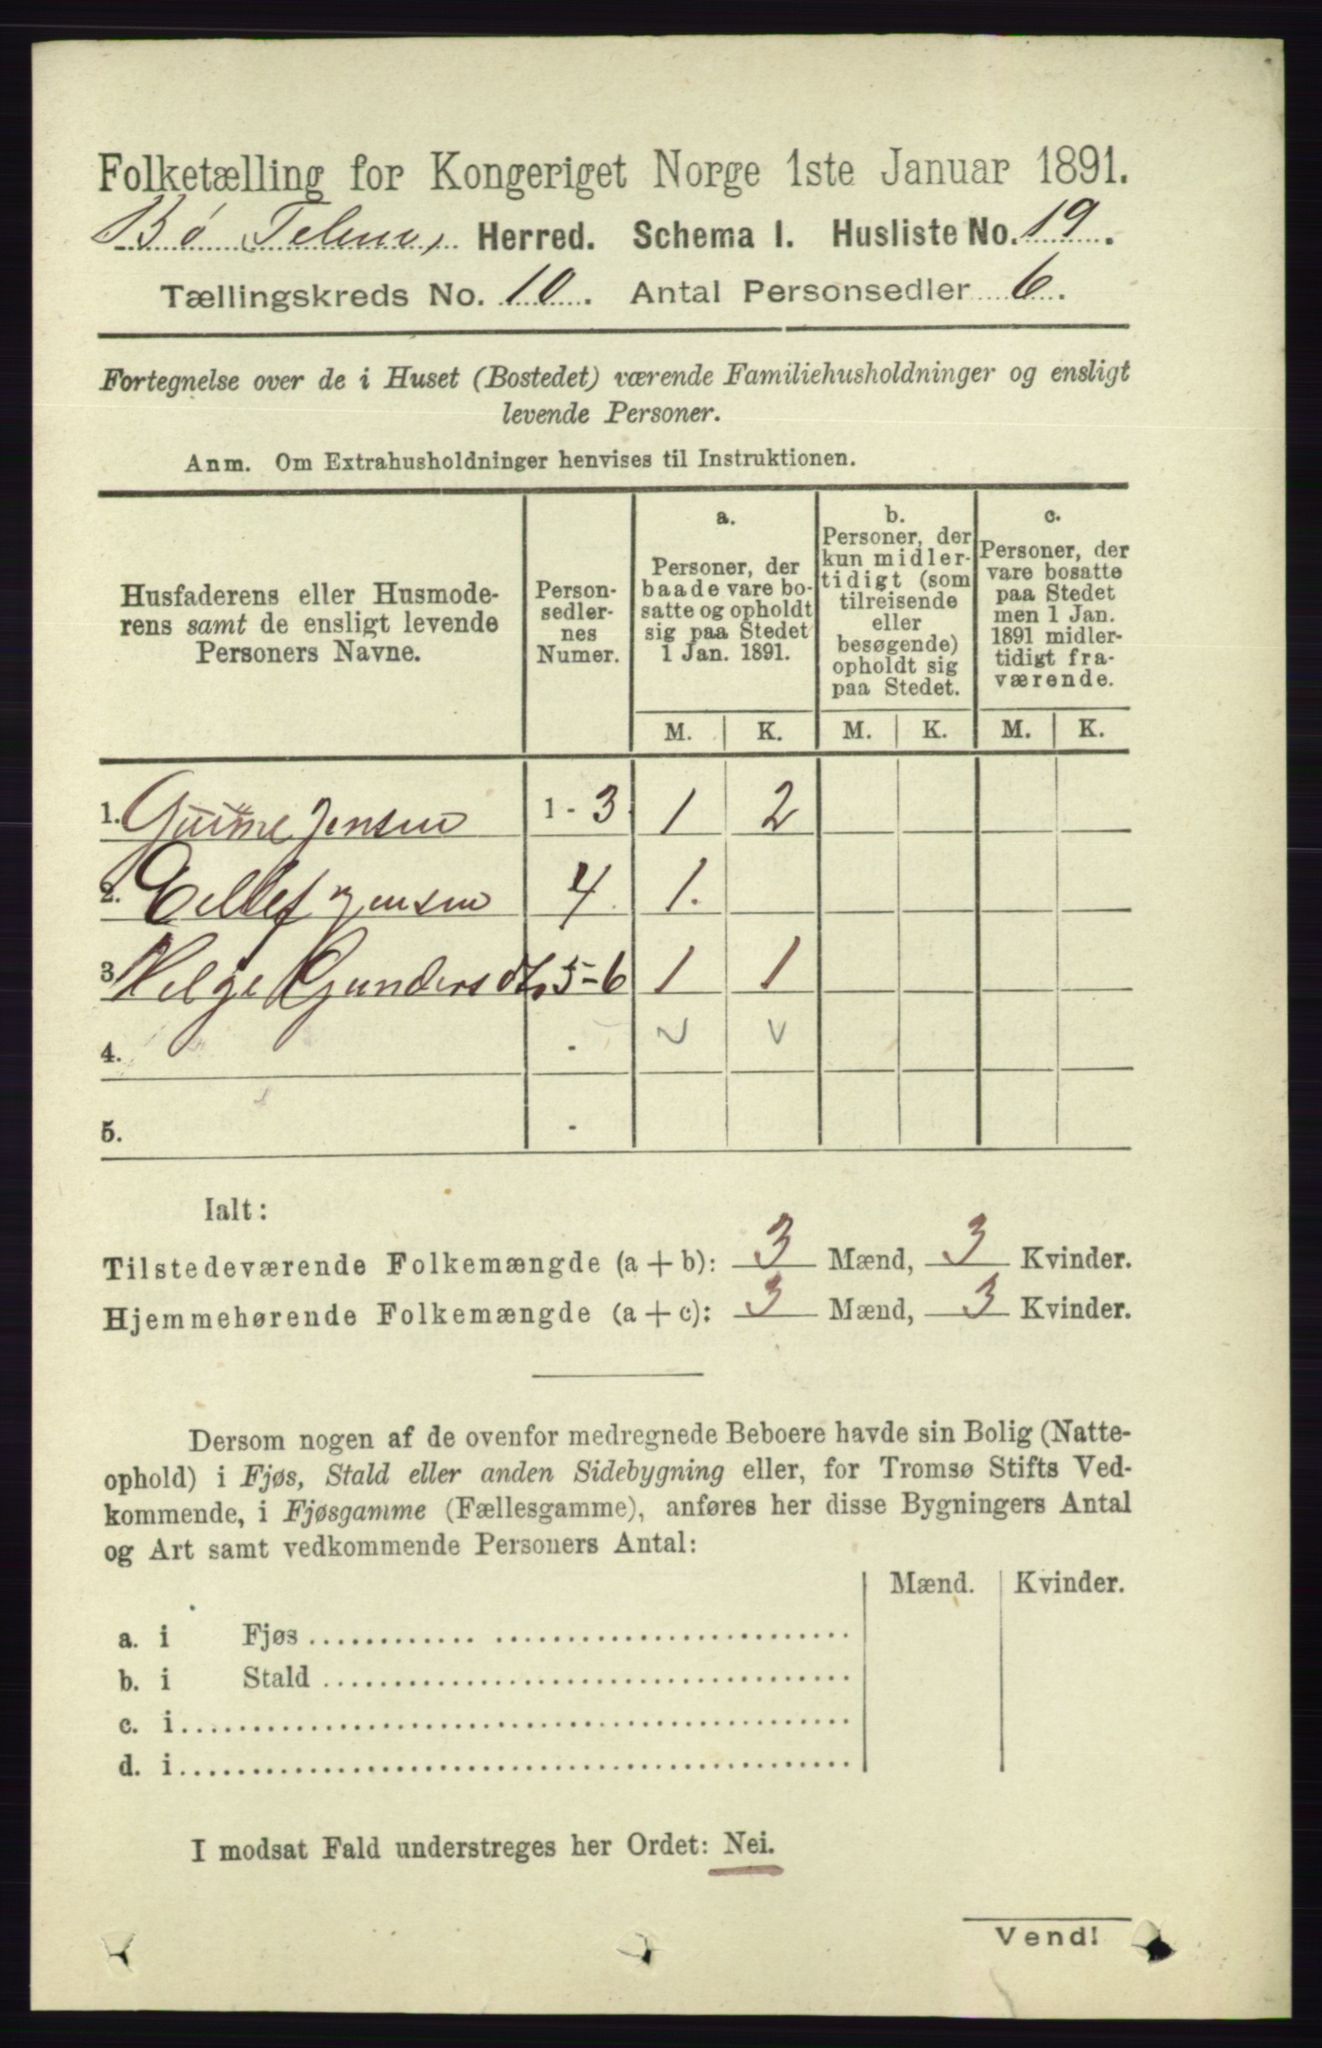 Folketælling for Kongeriget Norge 1ste Januar 1891.
Bø Telem. Herred. Schema I. Husliste No. 19.
Tællingskreds No. 10. Antal Personsedler 6.
Fortegnelse over de i Huset (Bostedet) værende Familiehusholdninger og ensligt
levende Personer.
Anm. Om Extrahusholdninger henvises til Instruktionen.
Husfaderens eller Husmode-
rens samt de ensligt levende
Personers Navne.
Person-
sedler-
nes
Numer.
a.
Personer, der
baade vare bo-
satte og opholdt
sig paa Stedet
1 Jan. 1891.
b.
Personer, der
kun midler-
tidigt (som
tilreisende
eller
besøgende)
opholdt sig
paa Stedet.
c.
Personer, der
vare bosatte
paa Stedet
men 1 Jan.
1891 midler-
tidigt fra-
værende.
M. K. M. K. M. K.
1. Jensen 1 - 3 1 2
2. Ellef Jensen 4 1.
3. Helge Gundersdt. 5-6 1 1
4. - v v
5. -
Ialt:
Tilstedeværende Folkemængde (a + b): 3 Mænd, 3 Kvinder.
Hjemmehørende Folkemængde (a + c): 3 Mænd, 3 Kvinder.
Dersom nogen af de ovenfor medregnede Beboere havde sin Bolig (Natte-
ophold) i Fjøs, Stald eller anden Sidebygning eller, for Tromsø Stifts Ved-
kommende, i Fjøsgamme (Fællesgamme), anføres her disse Bygningers Antal
og Art samt vedkommende Personers Antal:
Mænd. Kvinder.
a. i Fjøs
b. i Stald
c. i
d. i
I modsat Fald understreges her Ordet: Nei.
Vend!